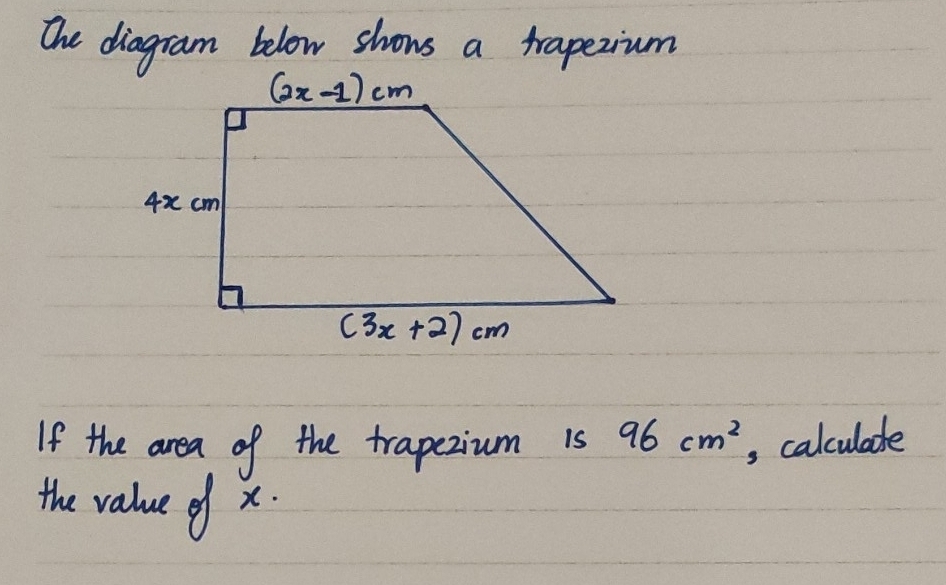 The diagram below shows a trapezium
(2x -1) cm
4x cm
(3x +2) cm
If the area of the trapezium is 96 cm², calculate
the value of x.